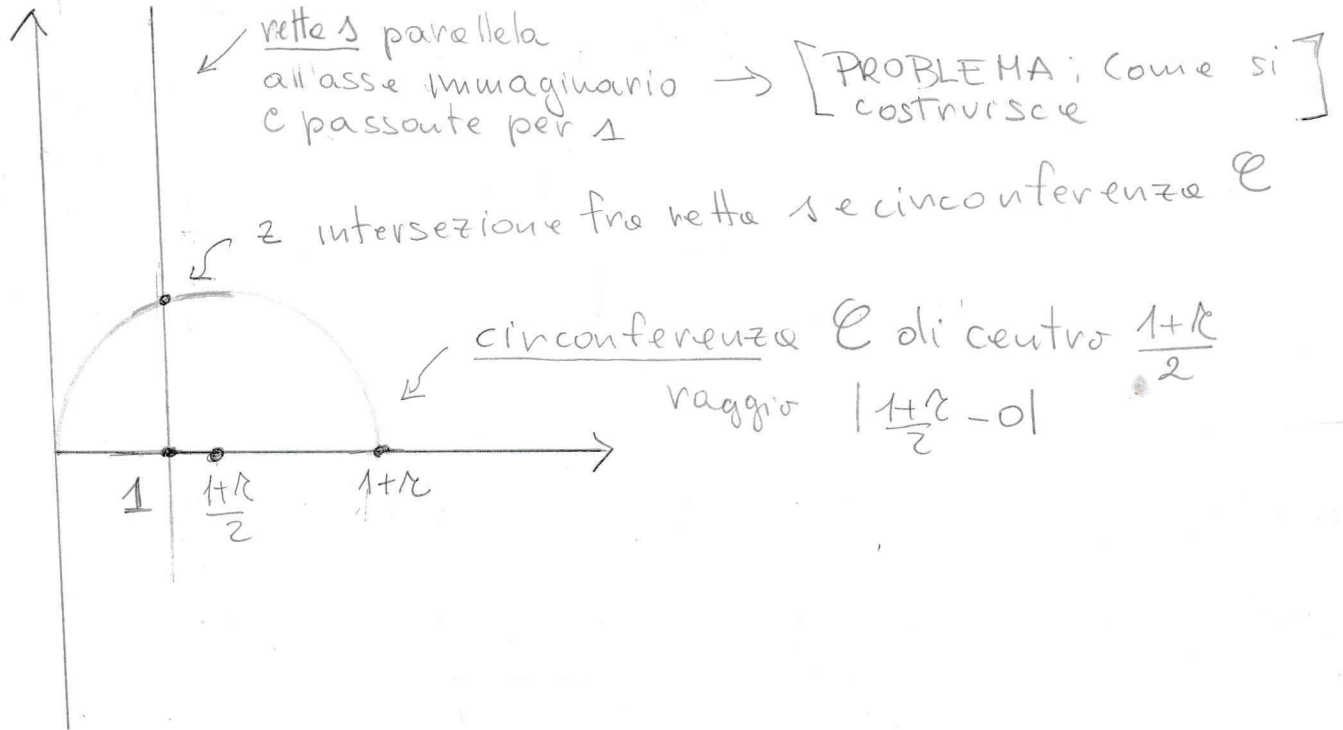 retta s parallela
all'asse immaginario → [PROBLEMA: Come si
e passante per 1 costruisce]
z intersezione fra retta s e circonferenza C
circonferenza C di centro (1+r)/2
raggio |(1+r)/2 - 0|
1 (1+r)/2 1+r